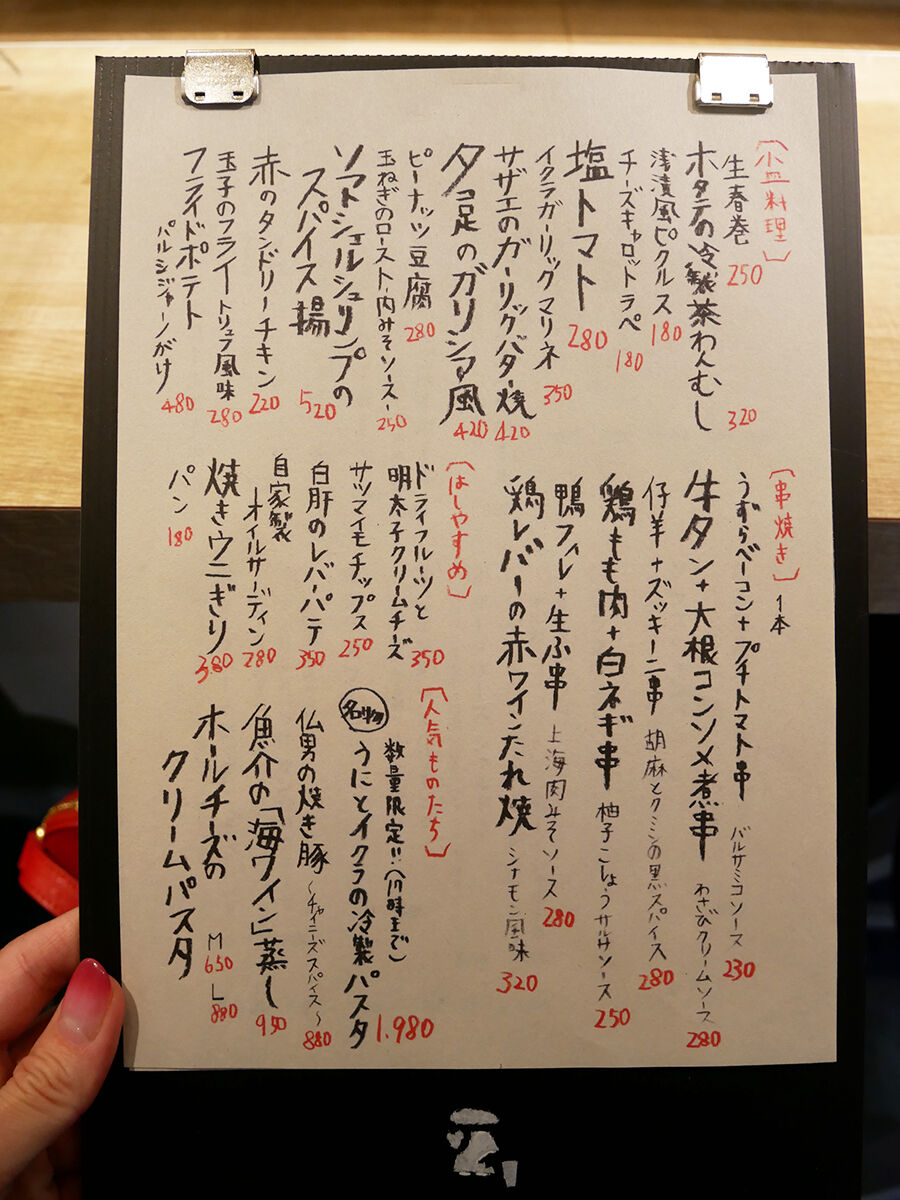 〔小皿料理〕
生春巻 250
ホタテの冷製茶わんむし 320
浅漬風ピクルス 180
チーズキャロットラペ 180
塩トマト 280
イクラガーリックマリネ 350
サザエのガーリックバター焼 420
タコ足のガリシア風 420
ピーナッツ豆腐 280
玉ねぎのロースト、肉みそソース〜 250
ソフトシェルシュリンプの
スパイス揚 520
赤のタンドリーチキン 220
玉子のフライ トリュフ風味 280
フライドポテト
パルジジャーノがけ 480
〔串焼き〕 1本
うずらベーコン+プチトマト串 バルサミコソース 230
牛タン+大根コンソメ煮串 わさびクリームソース 280
仔羊+ズッキーニ串 胡麻とクミンの黒スパイス 280
鶏もも肉+白ネギ串 柚子こしょうサルサソース 250
鴨フィレ+生ふ串 上海肉みそソース 280
鶏レバーの赤ワインたれ焼 シナモン風味 320
〔はしやすめ〕
ドライフルーツと
明太子クリームチーズ 350
サツマイモチップス 250
白肝のレバーパテ 350
自家製
オイルサーディン 280
焼きウニぎり 380
パン 180
〔人気ものたち〕
数量限定!!(〜11時まで)
名物 うにとイクラの冷製パスタ 1.980
仏男の焼き豚 〜チャイニーズスパイス〜 880
魚介の「海ワイン」蒸し 950
ホールチーズの
クリームパスタ
M 650 L 880